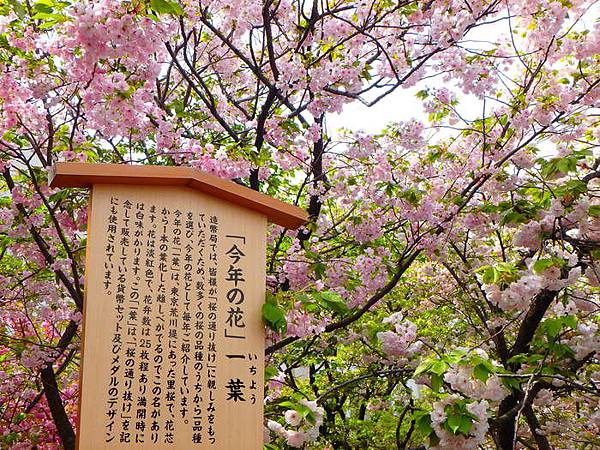 「今年の花」一葉
いちよう
造幣局では、皆様が「桜の通り抜け」に親しみをもっ
ていただくため、数多くの桜の品種のうちから一品種
を選び、今年の花として毎年ご紹介しています。
今年の花「一葉」は、東京荒川堤にあった里桜で、花芯
から1本の葉化した雌しべがでるのでこの名があり
ます。花は淡紅色で、花弁数は25枚程あり満開時に
は白味がかります。この「一葉」は、「桜の通り抜け」を記
念して販売している貨幣セット及びメダルのデザイン
にも使用されています。